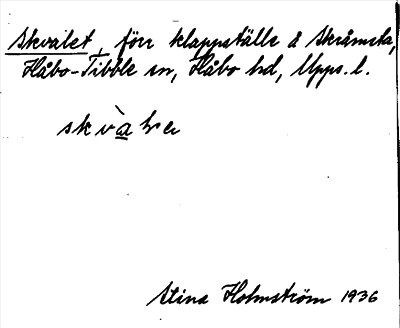 Skvalet, förr klappställe å Skråmsta,
Håbo-Tibble sn, Håbo hd, Upps. l.
Stina Holmström 1936